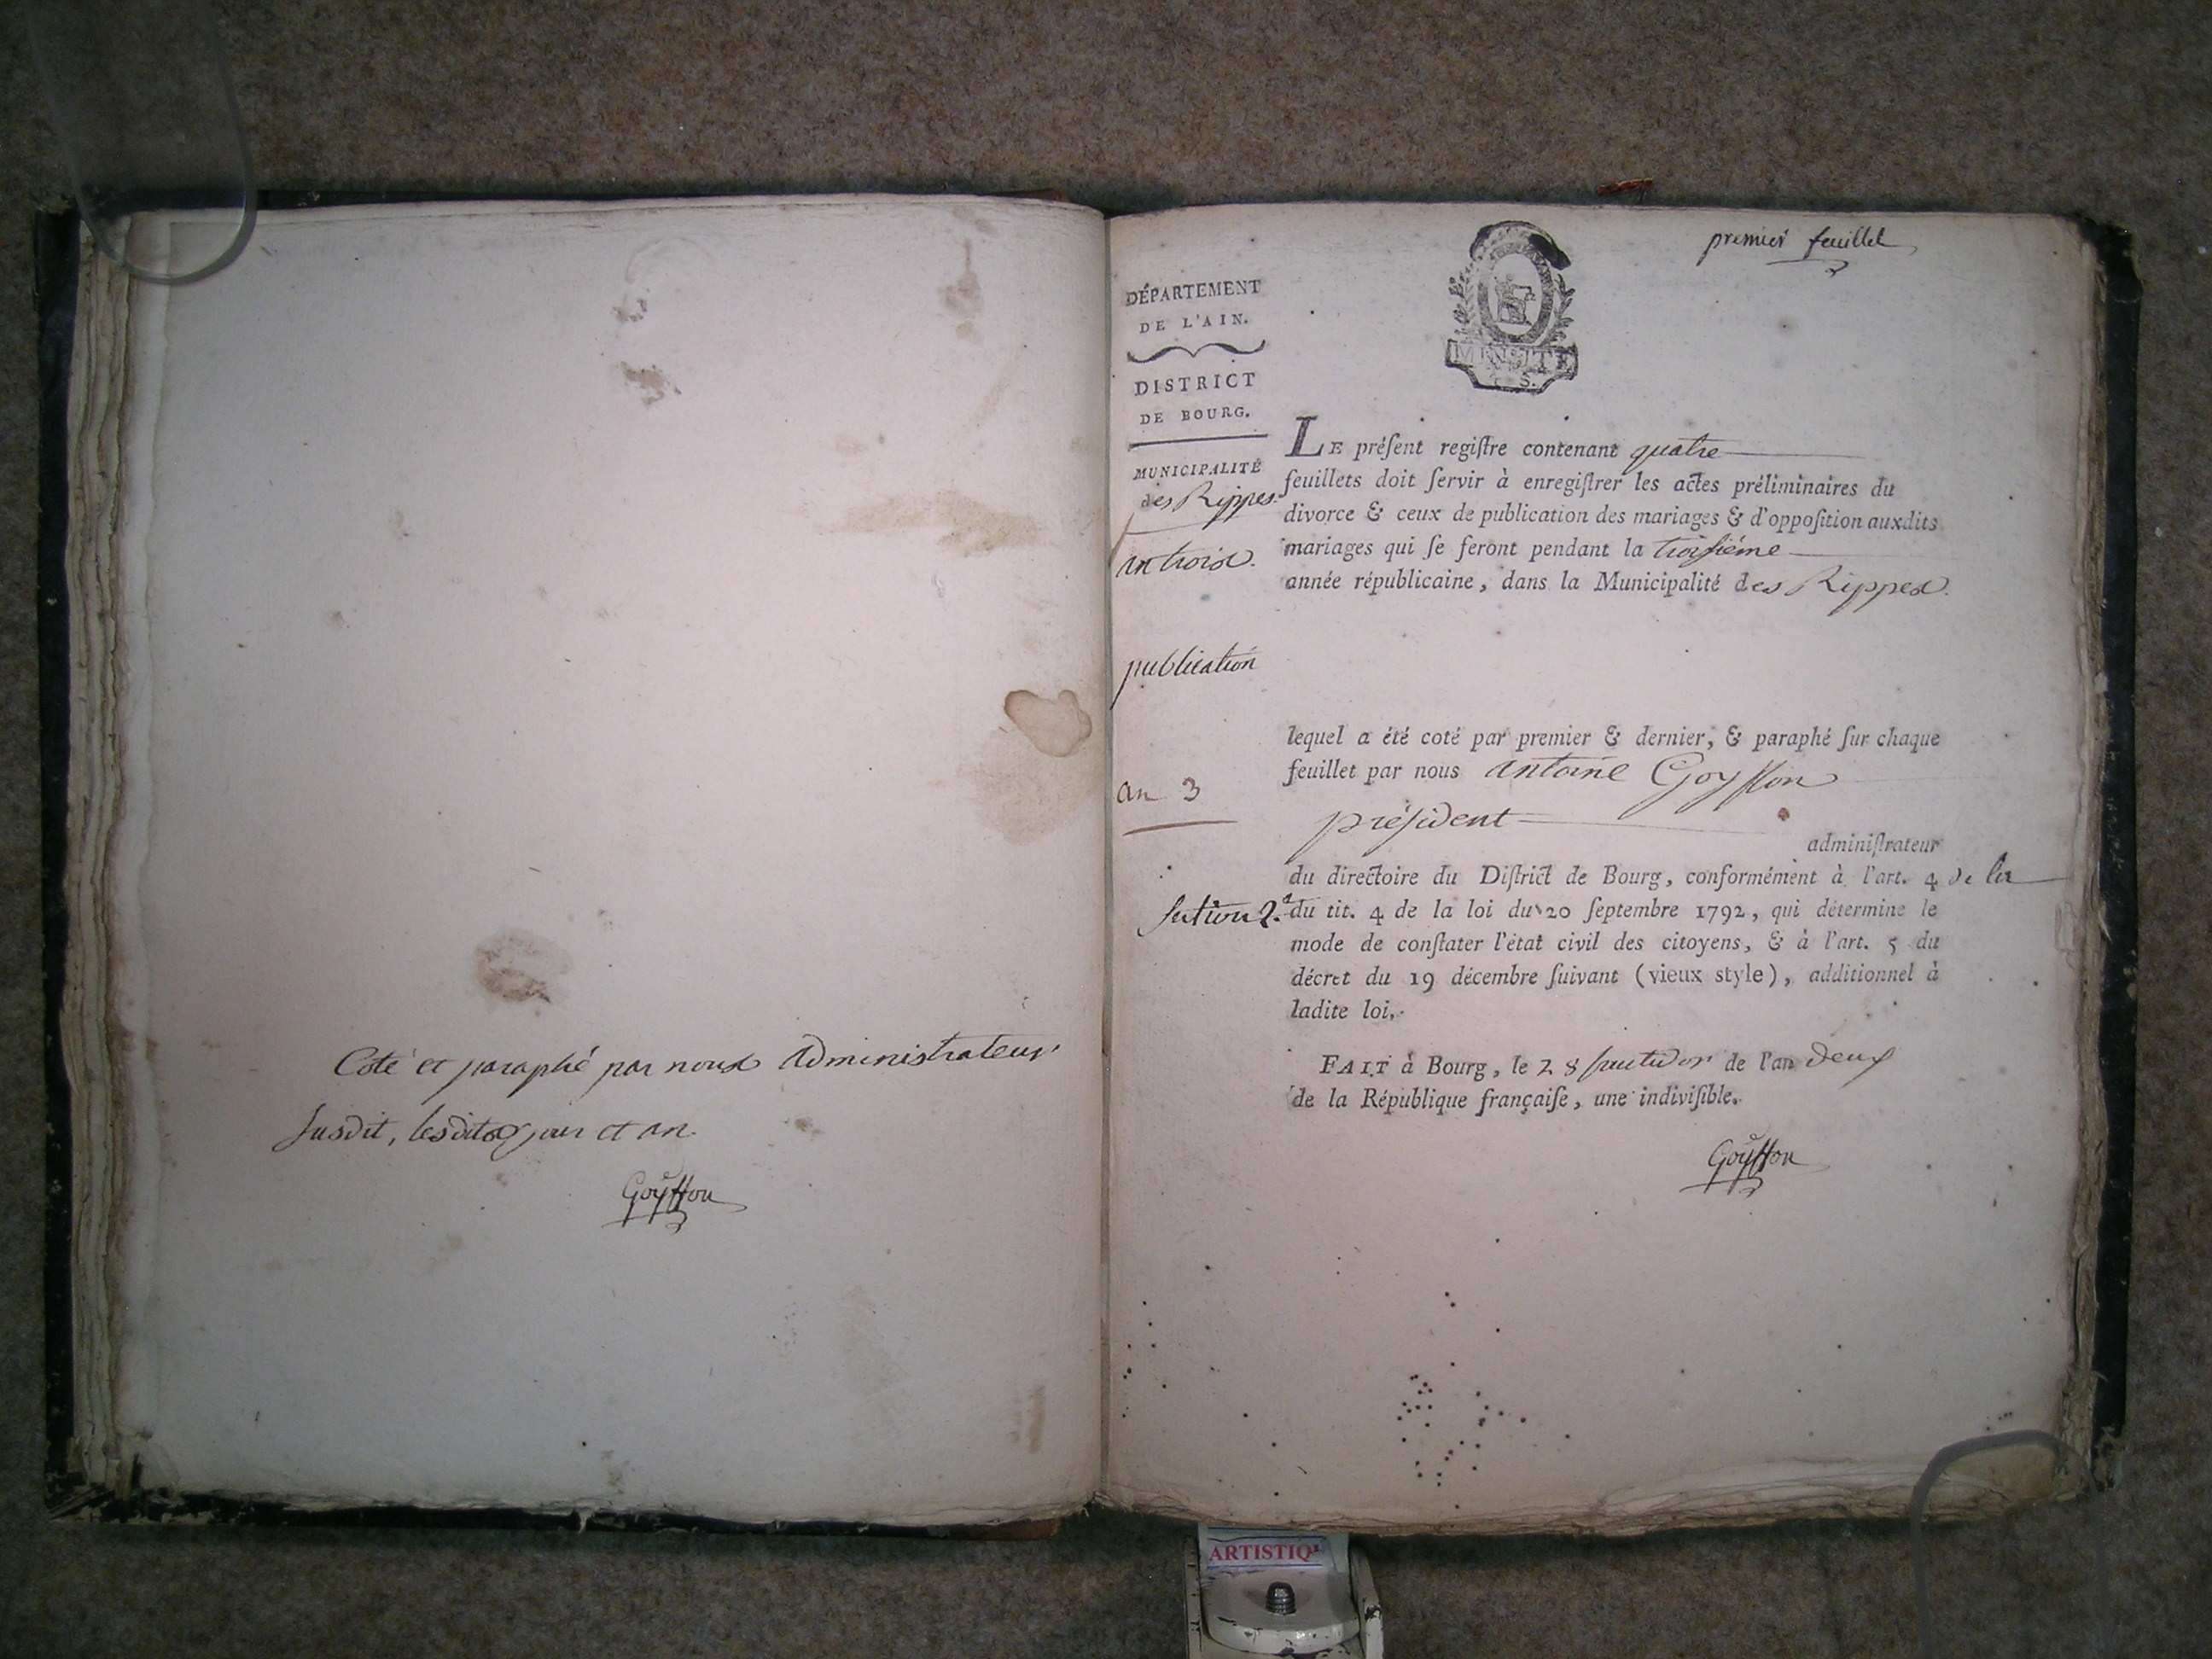 Coté et paraphé par nous administrateur
susdit, lesdits jour et an.
Goyffon
premier feuillet
DÉPARTEMENT
DE L'AIN.
DISTRICT
DE BOURG.
MUNICIPALITÉ
des Rippes.
an trois.
publication
an 3
MINUTE
S.
LE préſent regiſtre contenant quatre
feuillets doit ſervir à enregiſtrer les actes préliminaires du
divorce & ceux de publication des mariages & d'oppoſition auxdits
mariages qui ſe feront pendant la troiſiéme
année républicaine, dans la Municipalité des Rippes.
lequel a été coté par premier & dernier, & paraphé ſur chaque
feuillet par nous antoine Goyffon
préſident
adminiſtrateur
du directoire du Diſtrict de Bourg, conformément à l'art. 4 de la
ſection 2. du tit. 4 de la loi du 20 ſeptembre 1792, qui détermine le
mode de conſtater l'état civil des citoyens, & à l'art. 5 du
décret du 19 décembre ſuivant (vieux style), additionnel à
ladite loi.
FAIT à Bourg, le 28 fructidor de l'an deux
de la République françaiſe, une indiviſible.
Goyffon
ARTISTIQ